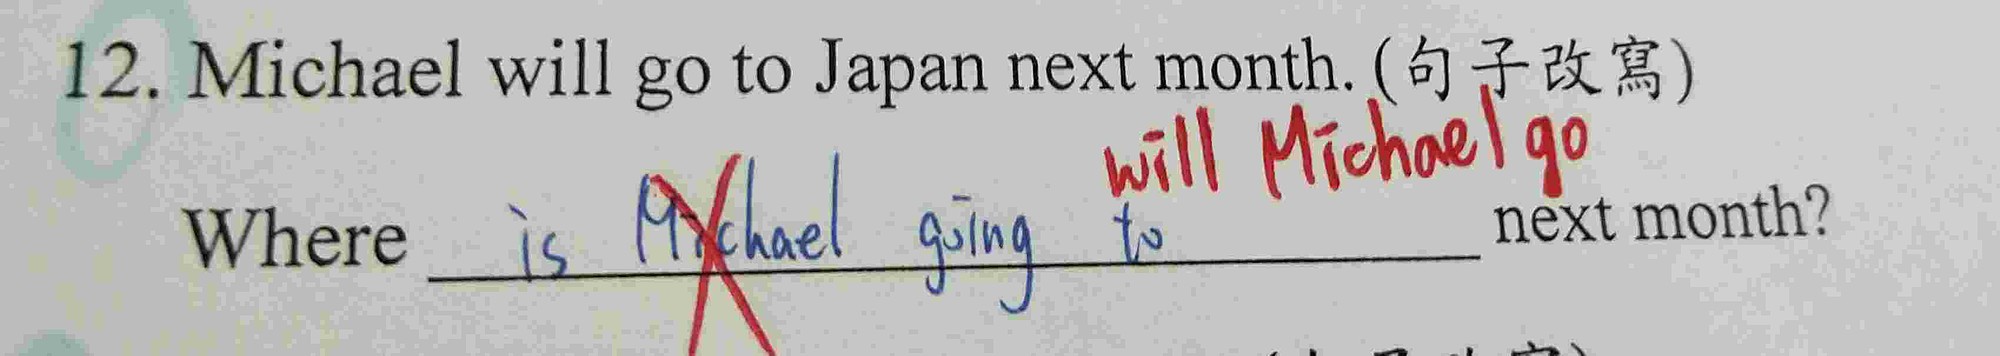 12. Michael will go to Japan next month. (句子改寫)
will Michael go
Where is Michael going to next month?